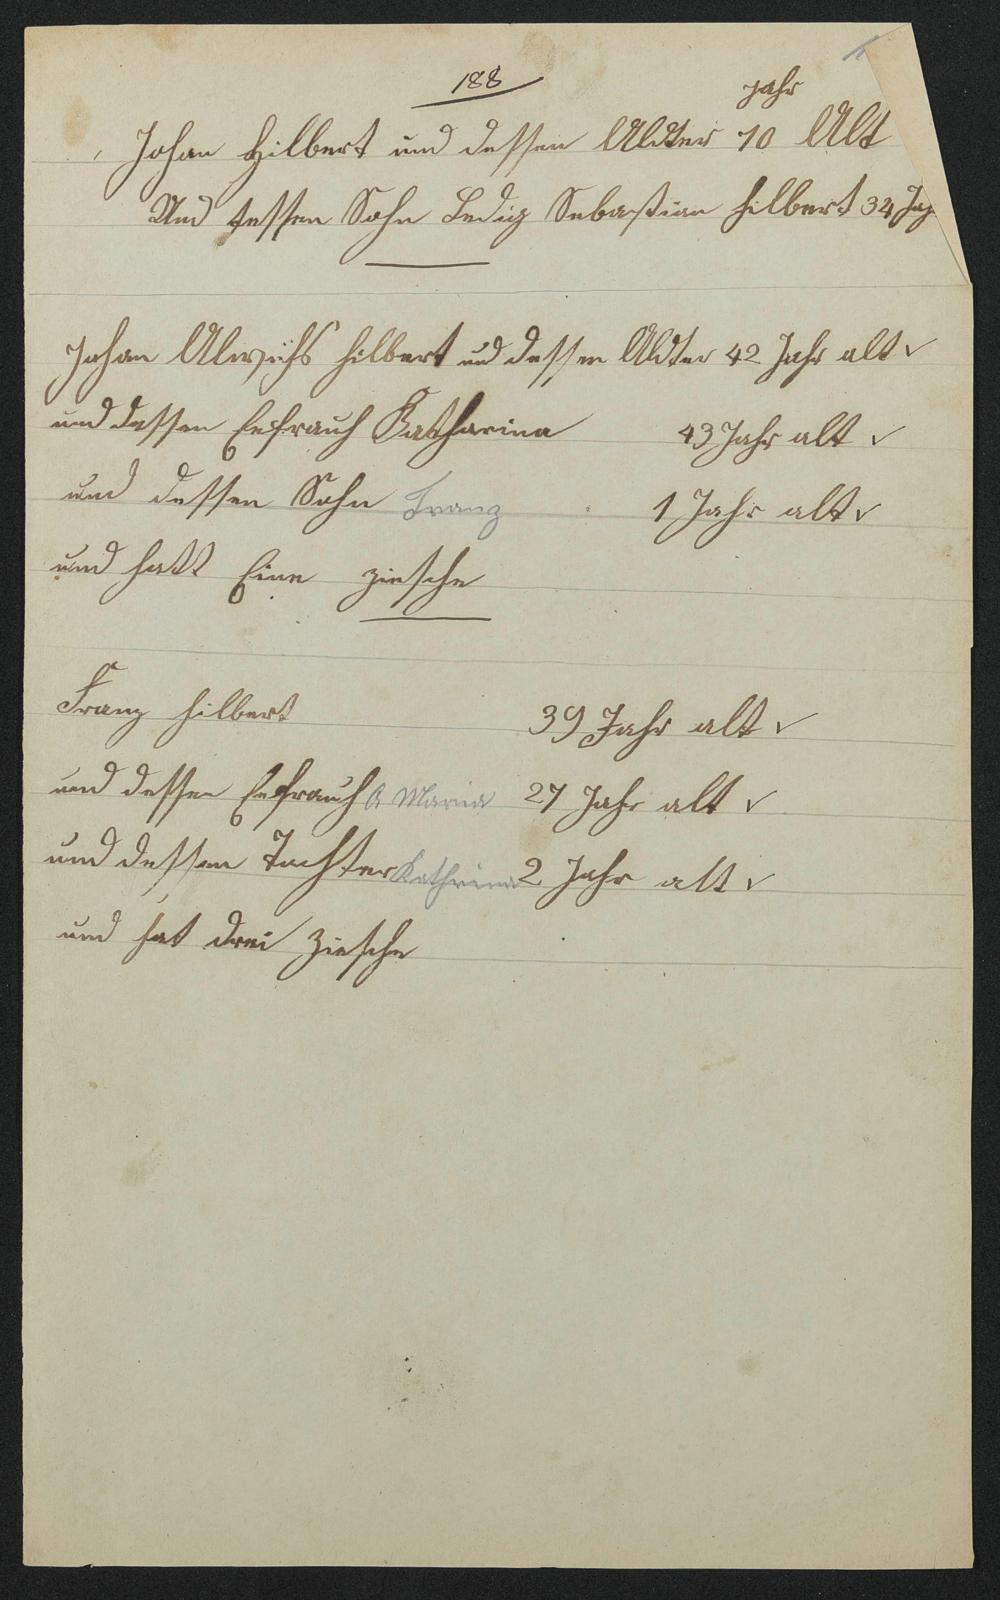 188
Jahr
Johan Hilbert und dessen Aldter 70 Alt
Und tessen Sohn Ledig Sebastian Hilbert 34 Jahr
Johan Alwihs Hilbert und dessen Aldter 42 Jahr alt ✓
und dessen Eefrauh Katharina 43 Jahr alt ✓
und dessen Sohn Franz 1 Jahr alt ✓
und hatt Eine Ziesche
Franz Hilbert 39 Jahr alt ✓
und dessen Eefrauh A Maria 27 Jahr alt ✓
und dessen Tochter Kathrina 2 Jahr alt ✓
und hat drei Ziesche